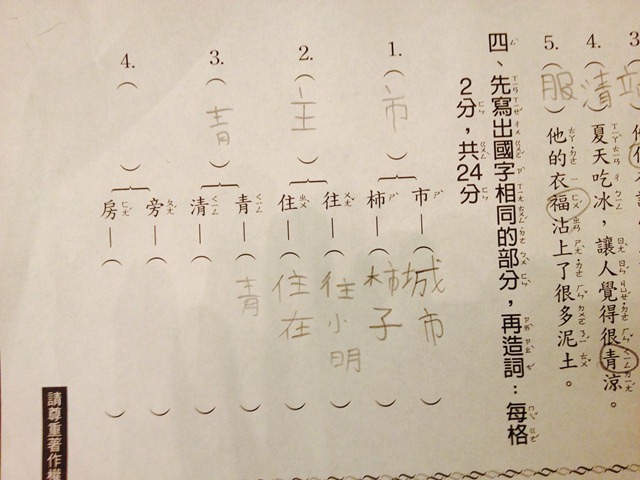 服 5.（服）他的衣福沾上了很多泥土。
4.（清）夏天吃冰，讓人覺得很青涼。
四、先寫出國字相同的部分，再造詞：每格
2分，共24分
1.（市）
市—（城市）
柿—（柿子）
2.（主）
往—（往小明）
住—（住在）
3.（青）
青—（青）
清—（）
4.（）
旁—（）
房—（）
請尊重著作權